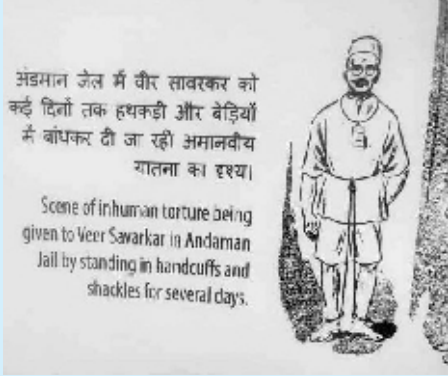 अंडमान जेल में वीर सावरकर को
कई दिनों तक हथकडी और बेड़ियों
में बांधकर दी जा रही अमानवीय
यातना का दृश्य।
Scene of inhuman torture being
given to Veer Savarkar in Andaman
Jail by standing in handcuffs and
shackles for several days.